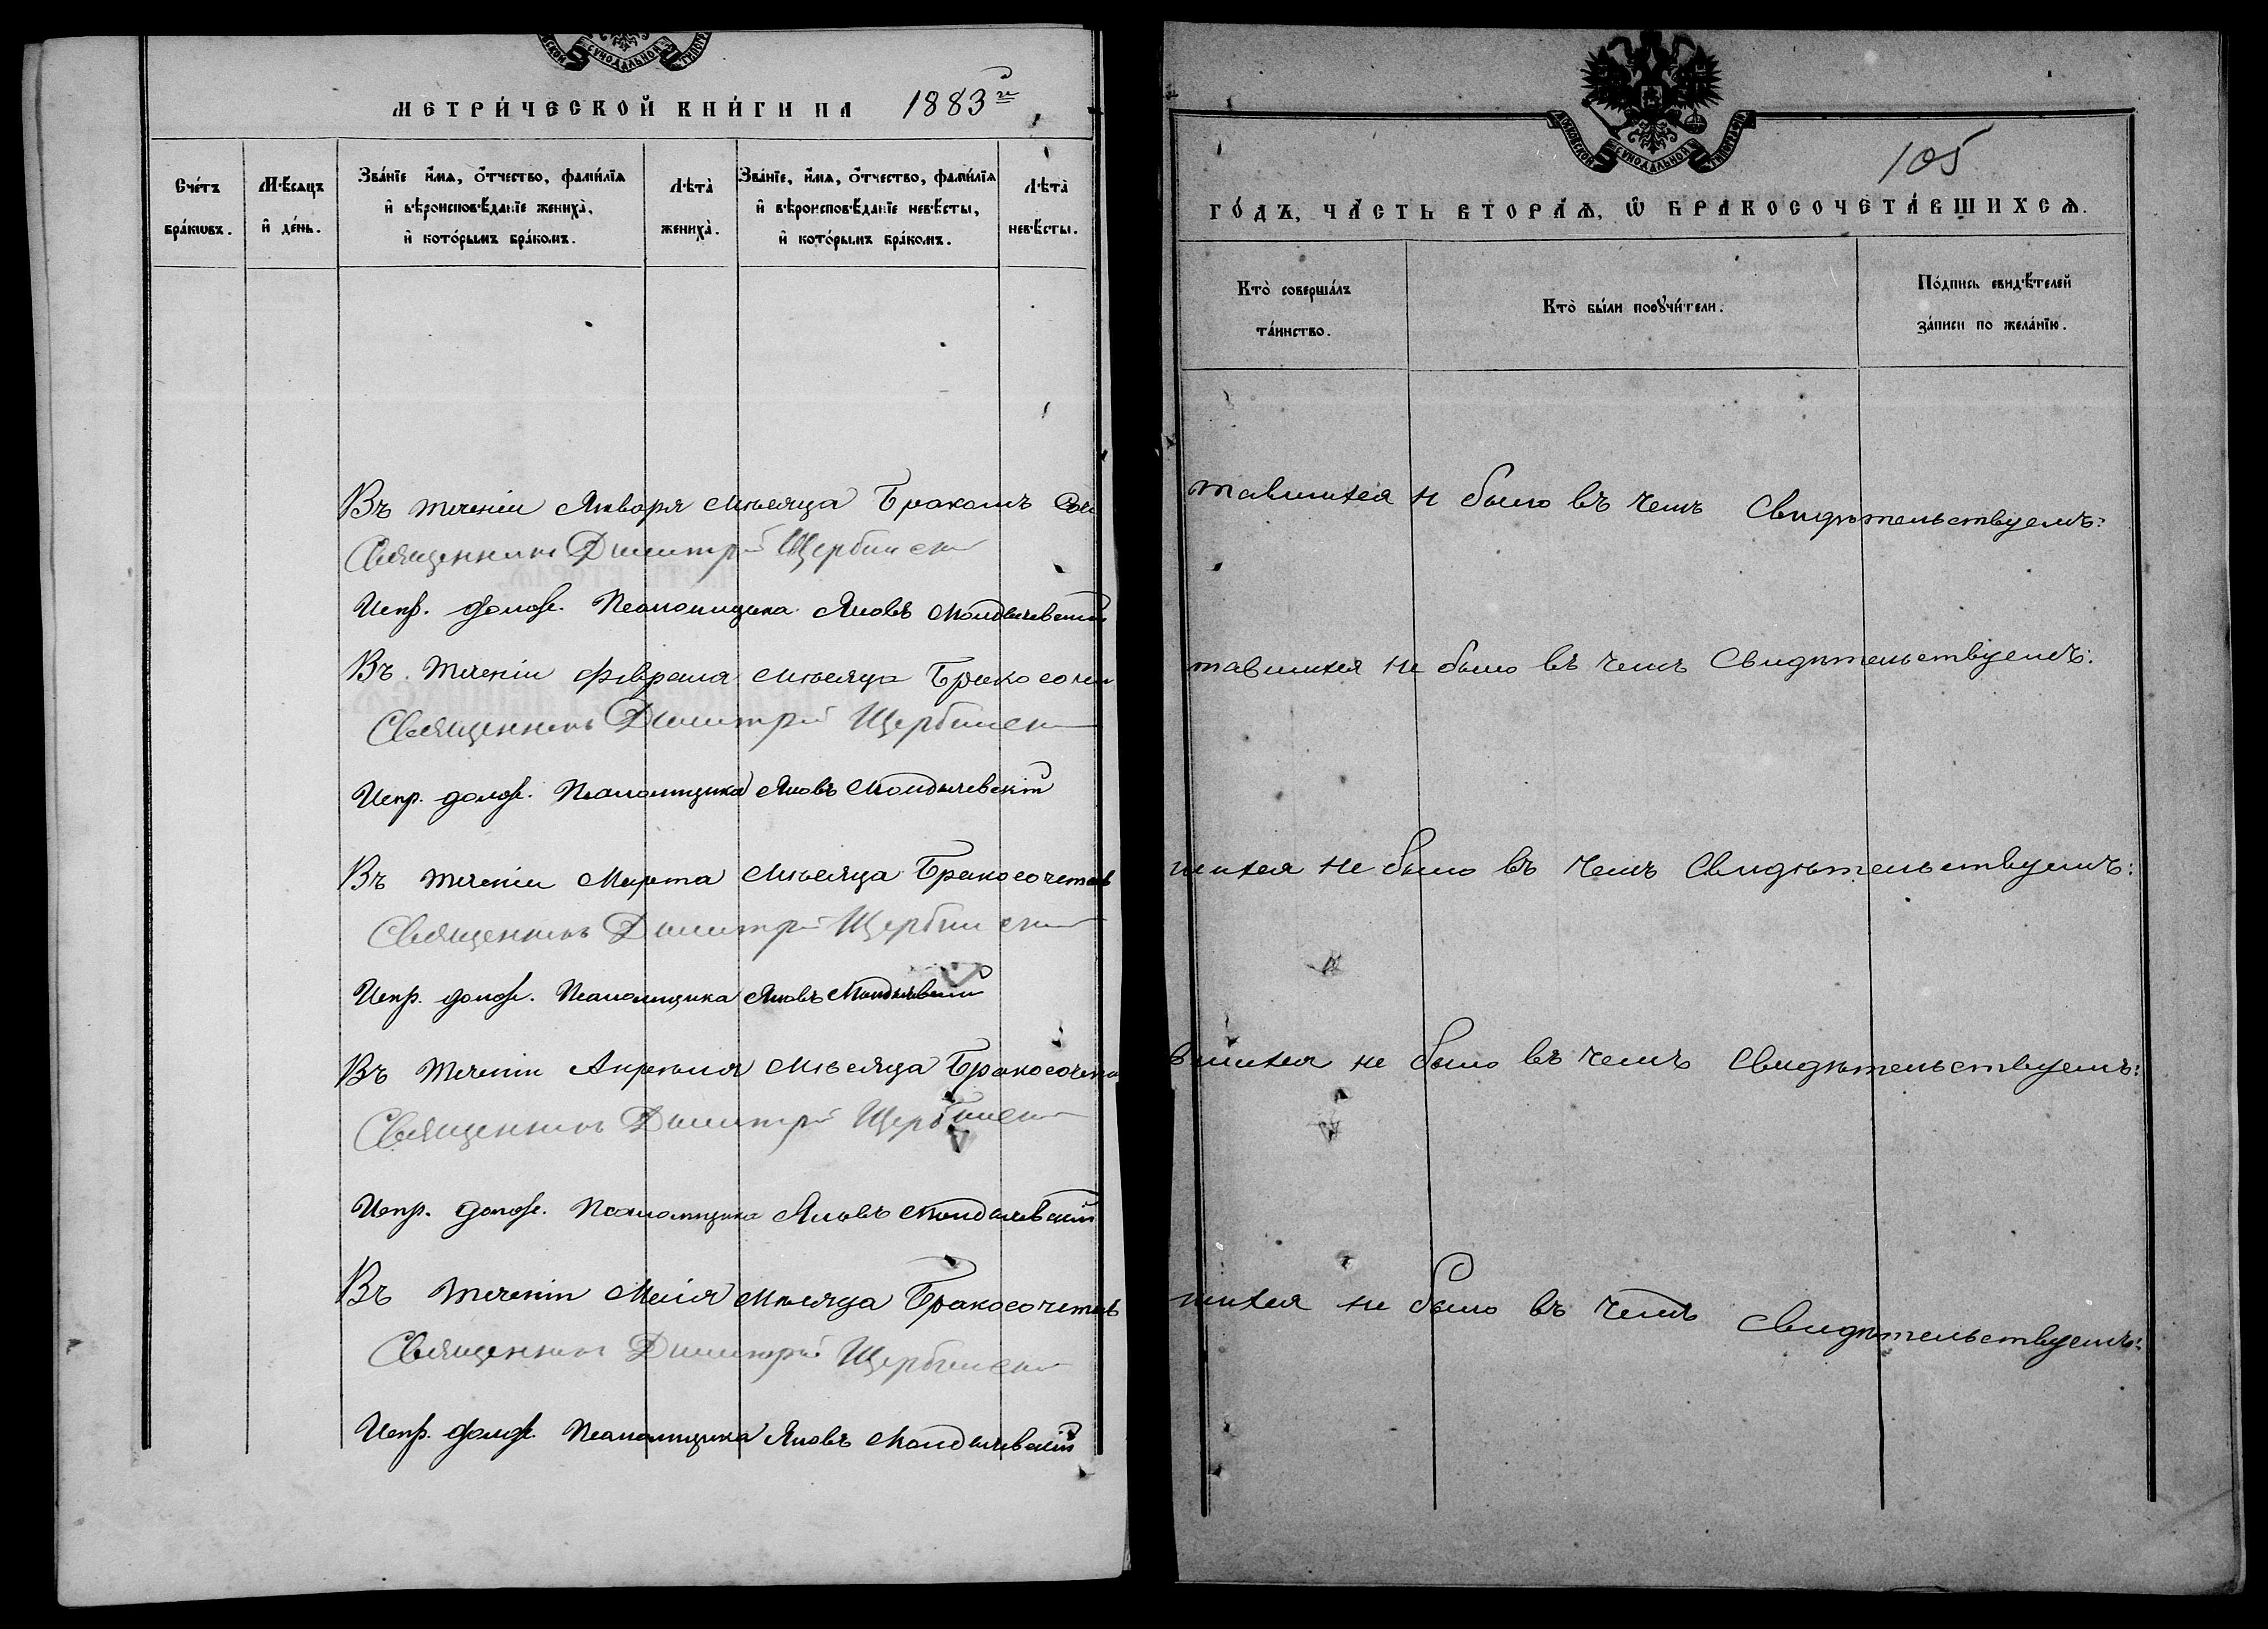 МЕТРИ́ЧЕСКОЙ КНИ́ГИ НА 1883й
Сче́тъ бра́кѡвъ.
Мѣ́сяцъ и҆ де́нь.
Зва́нїе и҆́мя, ѻ҆́тчество, фами́лїя и҆ вѣроисповѣ́данїе жениха̀, и҆ кото́рымъ бра́комъ.
Лѣта̀ жениха̀.
Зва́нїе, и҆́мя, ѻ҆́тчество, фами́лїя и҆ вѣроисповѣ́данїе невѣ́сты, и҆ кото́рымъ бра́комъ.
Лѣта̀ невѣ́сты.
Въ теченіи Января мѣсяца Бракомъ Соче
Священникъ Димитрій Щербинскій
Испр. долж. Псаломщика Яковъ
Въ теченіи Февраля мѣсяца Бракосоче
Священникъ Димитрій Щербинскій
Испр. долж. Псаломщика Яковъ
Въ теченіи Марта мѣсяца Бракосочетав
Священникъ Димитрій Щербинскій
Испр. долж. Псаломщика Яковъ
Въ теченіи Апрѣля мѣсяца Бракосочета
Священникъ Димитрій Щербинскій
Испр. долж. Псаломщика Яковъ
Въ теченіи Маія мѣсяца Бракосочетав
Священникъ Димитрій Щербинскій
Испр. долж. Псаломщика Яковъ
МОСКОВСКОЙ СѴНОДАЛЬНОЙ ТИПОГРАФІИ
105
ГО́ДЪ, ЧА́СТЬ ВТОРА́Ѧ, Ѽ БРАКОСОЧЕТА́ВШИХСѦ.
Кто̀ соверша́лъ та́инство.
Кто̀ бы́ли порꙋчи́тели.
По́дпись свидѣ́телей за́писи по жела́нїю.
тавшихся н было въ чемъ Свидѣтельствуемъ:
тавшихся не было въ чемъ Свидѣтельствуемъ:
шихся не было въ чемъ Свидѣтельствуемъ:
вшихся не было въ чемъ Свидѣтельствуемъ:
шихся не было въ чемъ Свидѣтельствуемъ: